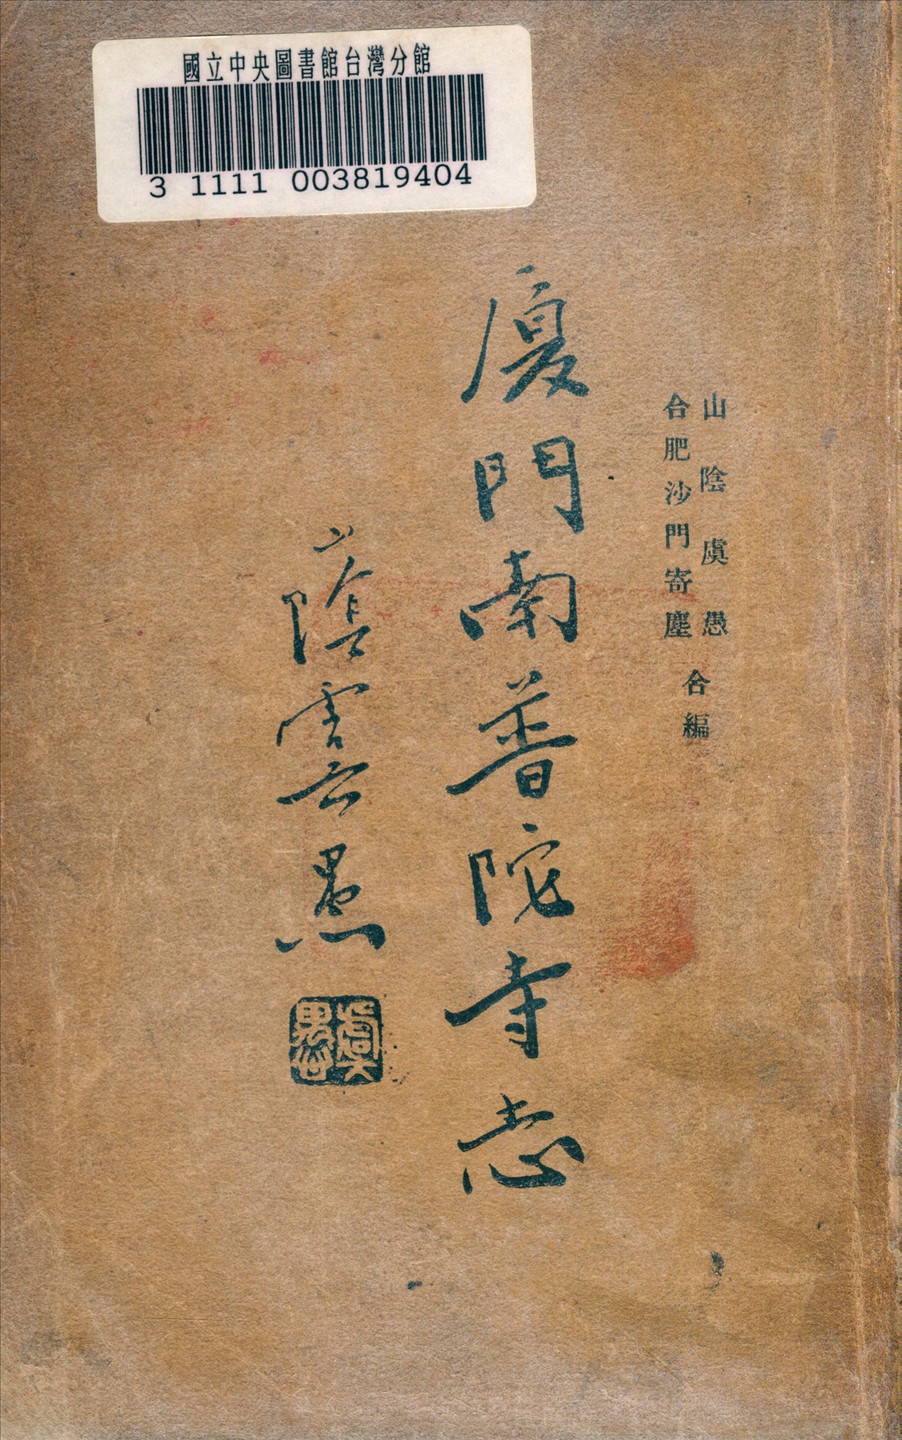 國立中央圖書館台灣分館
3 1111 003819404
山陰虞愚
合肥沙門寄塵
合編
廈門南普陀寺志
山陰虞愚
虞愚